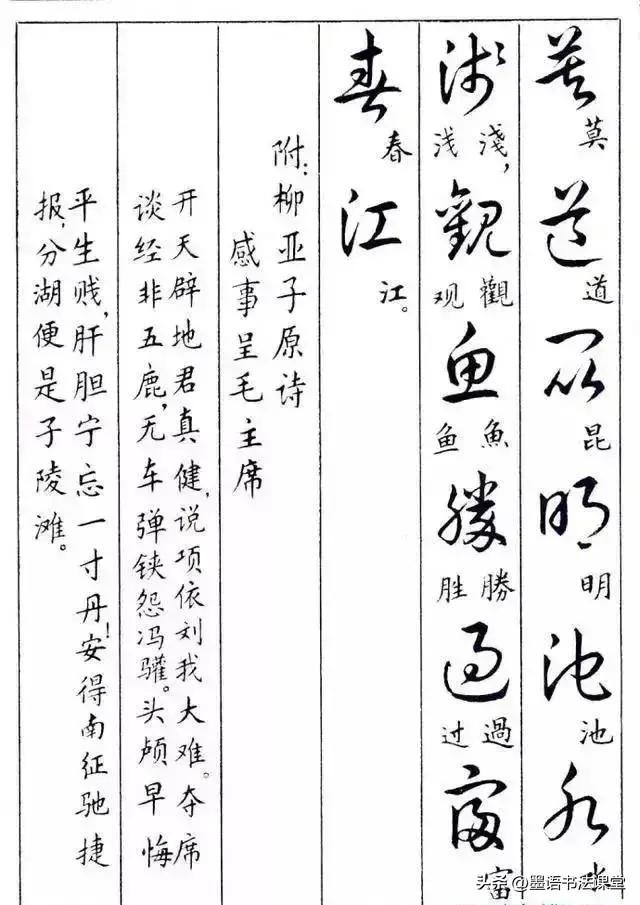 莫道昆明池水
莫 道 昆 明 池 水
浅觀鱼勝過富
淺,浅 觀观 魚鱼 勝胜 過过 富
春江
春 江。
附:柳亚子原诗
感事呈毛主席
开天辟地君真健,说项依刘我大难。夺席
谈经非五鹿,无车弹铗怨冯驩。头颅早悔
平生贱,肝胆宁忘一寸丹!安得南征驰捷
报,分湖便是子陵滩。
头条@墨语书法课堂